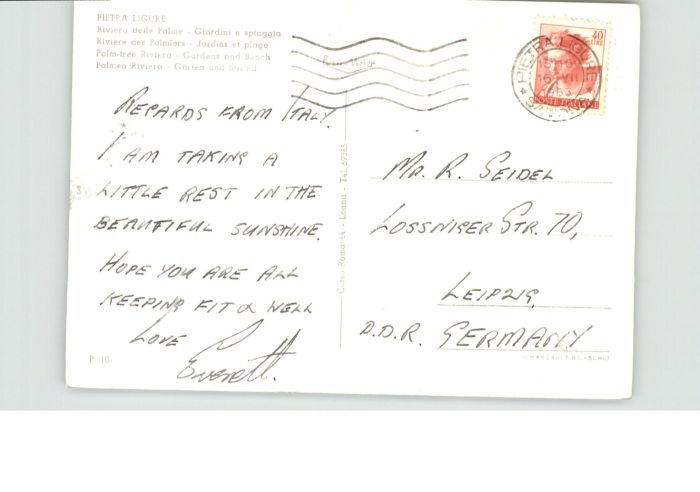 PIETRA LIGURE
Riviera delle Palme - Giardini e spiaggia
Rivière des Palmiers - Jardins et plage
Palm-tree Riviera - Gardens and Beach
Palmen Riviera - Gärten und Strand
40
LIRE
POSTE ITALIANE
PIETRA LIGURE
REGARDS FROM ITALY.
I AM TAKING A
LITTLE REST IN THE
BEAUTIFUL SUNSHINE.
HOPE YOU ARE ALL
KEEPING FIT & WELL
LOVE
Everett.
MR. R. SEIDEL
LOSSNIGER STR. 70,
LEIPZIG,
D.D.R. GERMANY
Loano - Tel. 69385
P. 10